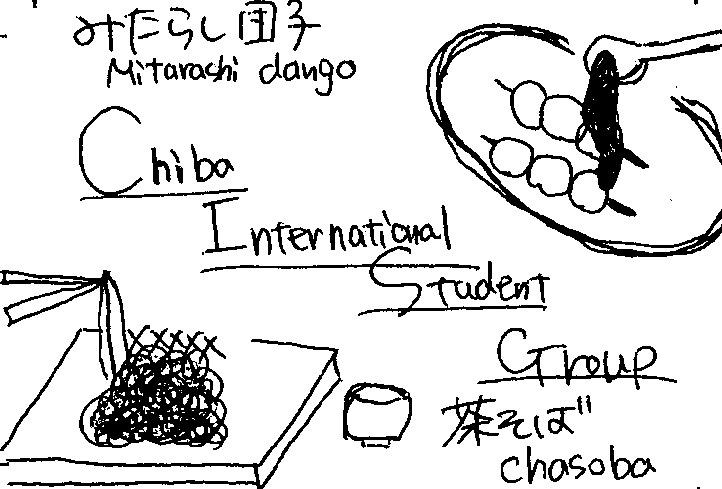 みたらし団子
Mitarashi dango
Chiba
International
Student
Group
茶そば
chasoba